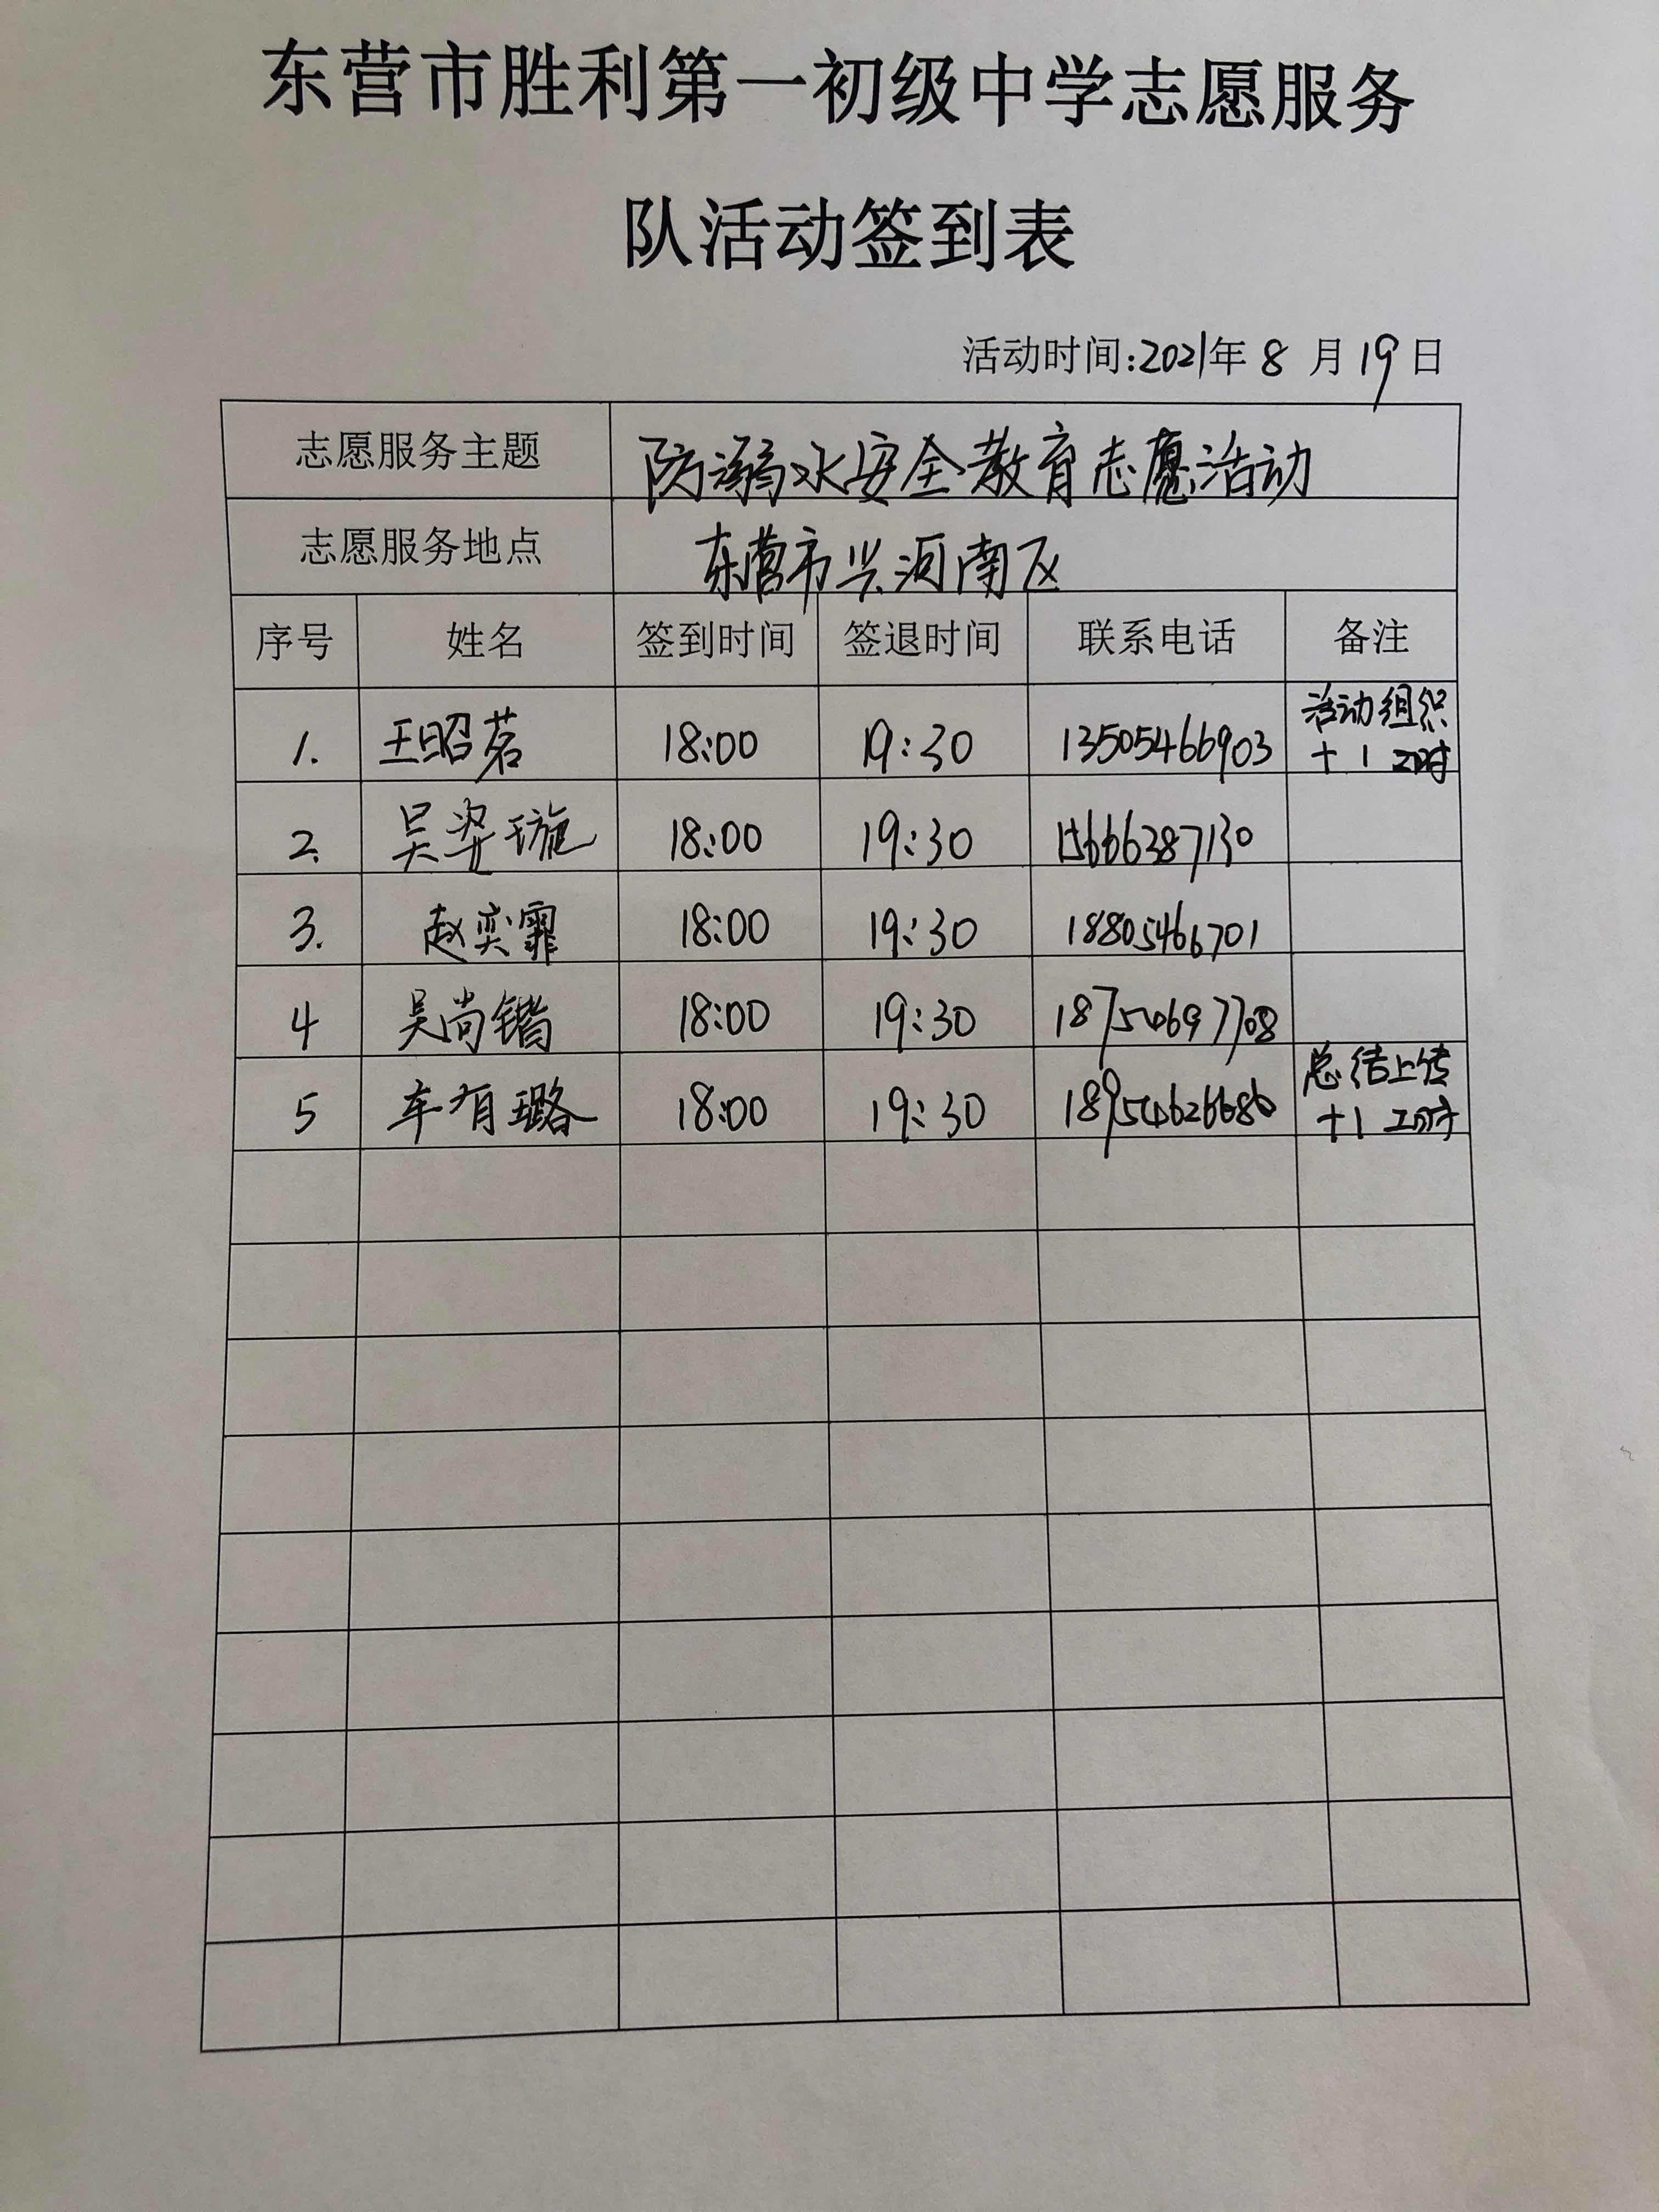 东营市胜利第一初级中学志愿服务
队活动签到表
活动时间:2021年 8 月 19 日
志愿服务主题 防溺水安全教育志愿活动
志愿服务地点 东营市兴河南区
序号 姓名 签到时间 签退时间 联系电话 备注
1. 王昭茗 18:00 19:30 13505466903 活动组织
+1工时
2. 吴姿璇 18:00 19:30 15666387130
3. 赵奕霏 18:00 19:30 18805466701
4 吴尚锴 18:00 19:30 18754697708
5 车有璐 18:00 19:30 18954626686 总结上传
+1工时